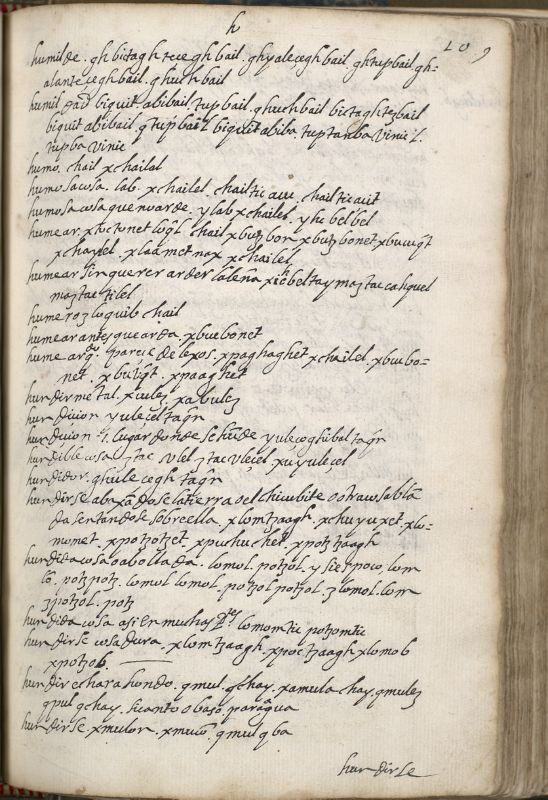 h
109
humilde. gh bictagh. tecegh bail. ghyalecegh bail. ghtupbail gh-
alantecegh bail. ghuch bail
humil biquit. abibail tupbail. ghuch bail bictagh tzbail
biquit abibail. qtupbail L biquitabiba. tuptanba vinic L.
tupba vinic
humo. chail xchailal
humosa cosa. lab. xchailel. chailtic chailticauit
humosa cosa que no arde. ylab xchailel. yhc belbel
humear. xtoctonet chail xbutz bon xbutz bonet xbuuiqt
xchaylel. xlaametnax xchailel
humear sin querer arder la leña beltay maztac cahquel
maztac tilel
humeroz loquibchail
humear antes que arda. xbuebonet
humear parece de lexos. xpaghaghet xchailel. xbubo-
net. xbuuiqt. xpaaghet
hundir metal. xulez. xabulez
hundicion yulecel
hundicion lugar donde se hūde yulecoghibal
hundible cosa. ztac vlel ztac vlecel. xuyulecel
hundidor. ghulecegh
hundirse abaxādose la tierra o el chicubite o otra cosa blā
da sentandose sobre ella. xlomtzaagh. xchuyuxet. xlo-
monet. xpotzotzet. xpuchuchet. xpotztzaagh
hundida cosa o abollada. lomol. potzol. y si es poco lom
lo. potzpotz. lomol lomol. potzol potzol. zlomol. lom
zpotzol. potz
hundida cosa asi en muchas ptes lomomtic potzomtic
hundirse cosa dura. xlomtzaagh. xpoctzaagh xlomob
xpotzob.
hundir echar a hondo. qmul. qchay. xamula chay. qmulez
qpul qchay. si canto o baso para agua
hundirse. xmulon. xmuco. qmulqba
hundirse